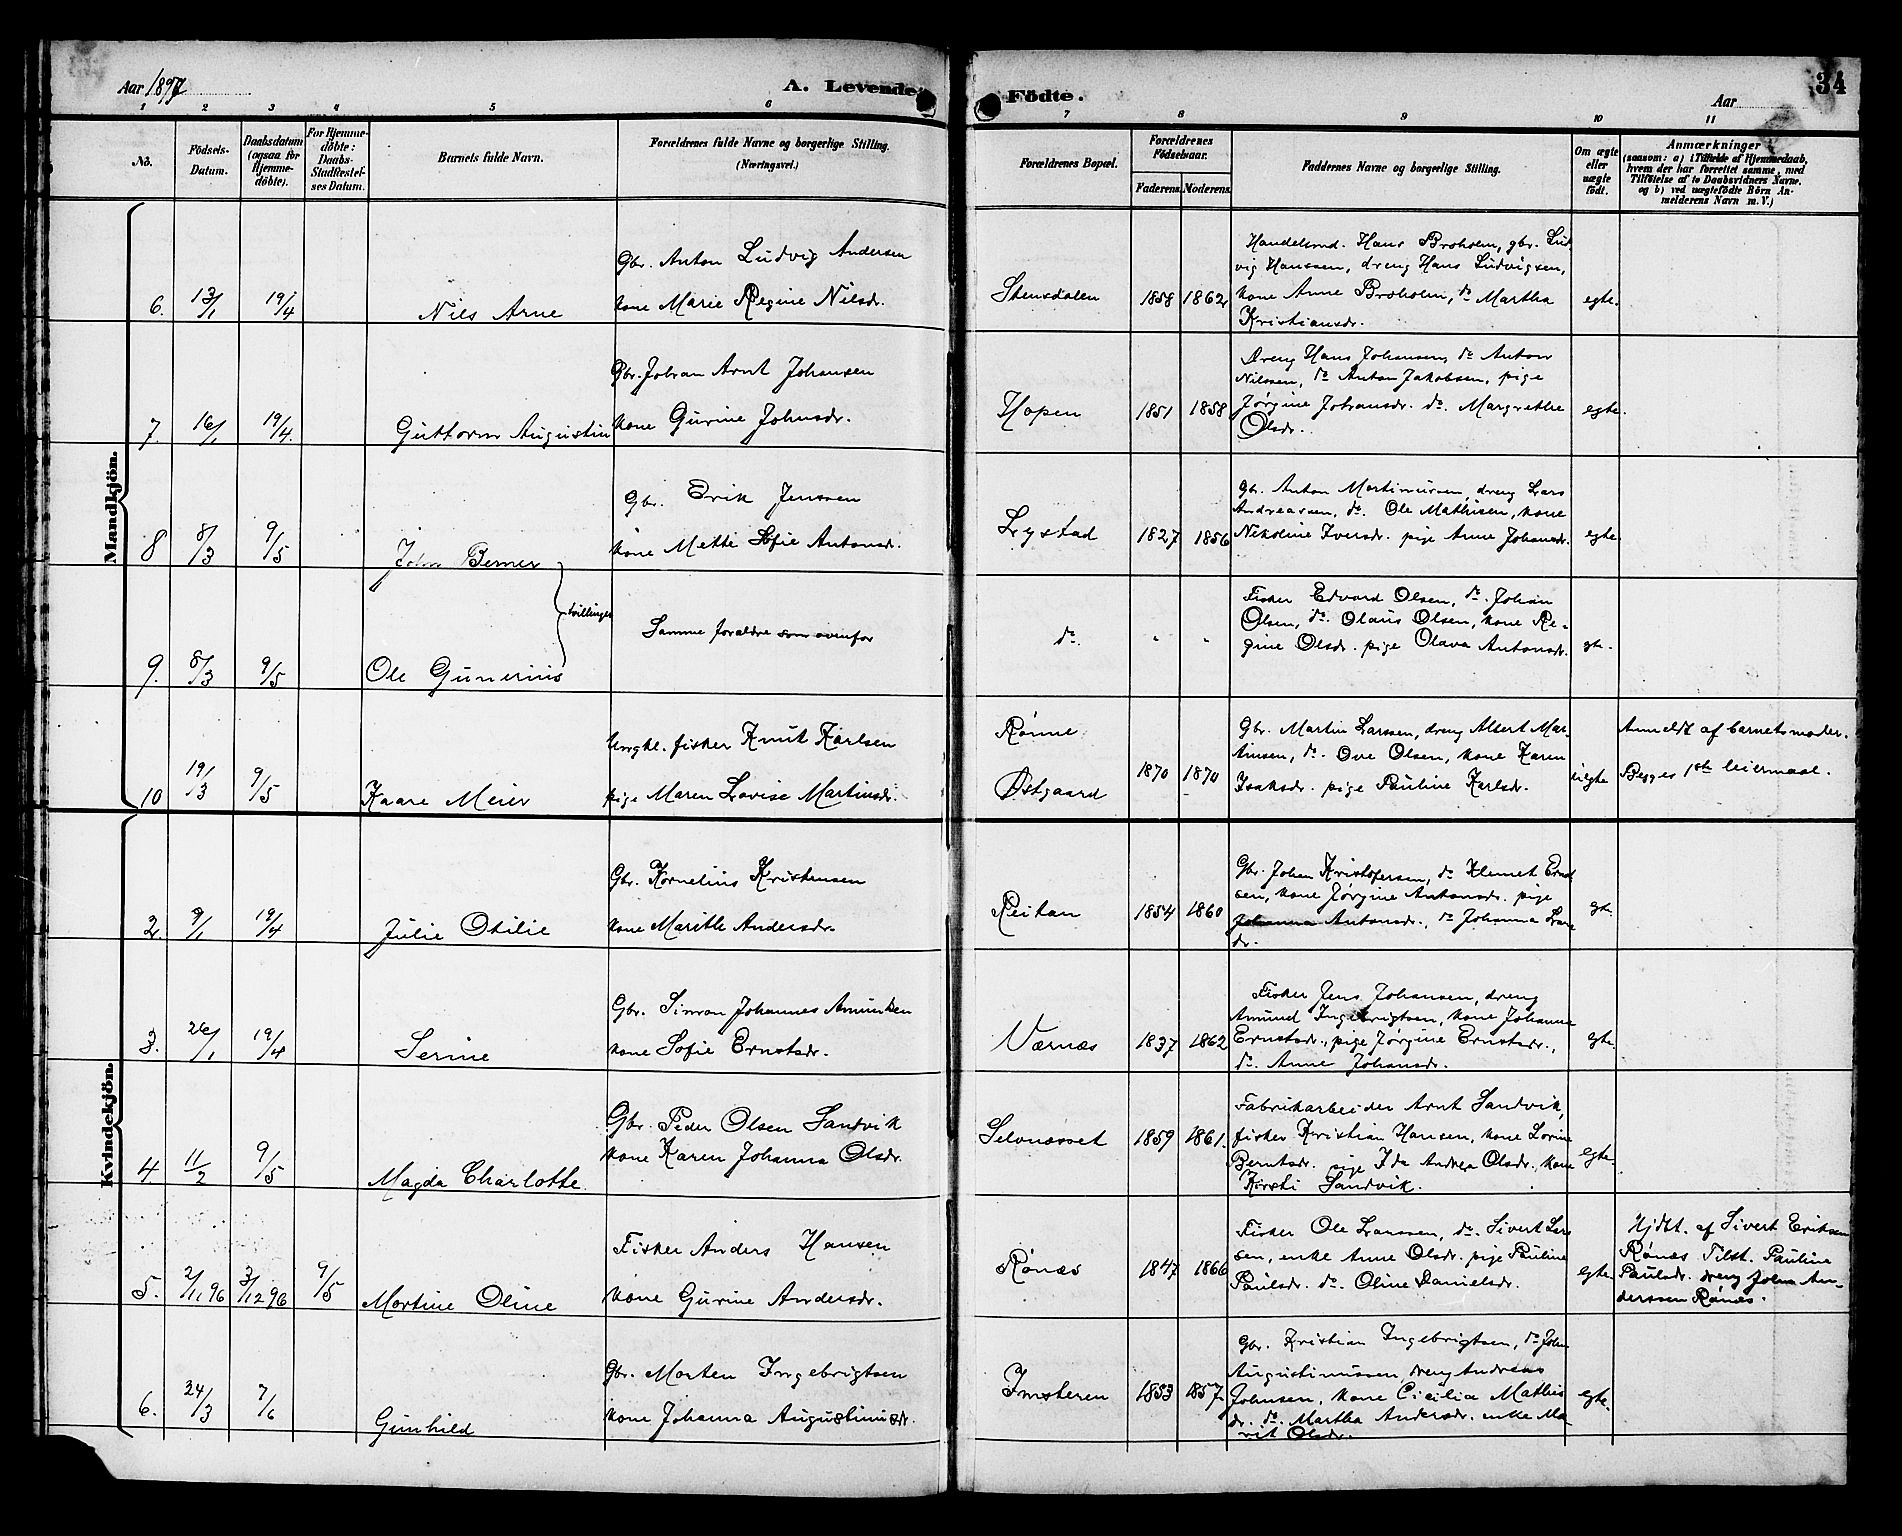 Aar 1897
A. Levende
Födte.
Aar
34
1 2 3 4 5 6 7 8 9 10 11
No.
Födsels-
Datum.
Daabsdatum
(ogsaa for
Hjemme-
döbte).
For Hjemme-
döbte:
Daabs-
Stadfæstel-
ses Datum.
Barnets fulde Navn.
Forældrenes fulde Navne og borgerlige Stilling.
(Næringsvei.)
Forældrenes Bopæl.
Forældrenes
Födselsaar.
Faderens. Moderens.
Faddernes Navne og borgerlige Stilling.
Om ægte
eller
uægte
födt.
Anmærkninger
(saasom: a) i Tilfælde af Hjemmedaab,
hvem der har forrettet samme, med
Tilföielse af to Daabsvidners Navne,
og b) ved uægtefödte Börn An-
melderens Navn m. V.)
Mandkjön.
6. 13/1 19/4 Nils Arne
Gbr. Anton Ludvig Andersen
kone Marie Regine Nilsdr.
Stensdalen 1858 1862
Handelsmd. Hans Broholm, gbr. Lud
vig Hanssen, dreng Hans Ludvigsen,
kone Anne Broholm, do Martha
Kristiansdr.
egte.
7. 16/1 19/4 Guttorm Augustin
Gbr. Johan Arnt Johansen
kone Gurine Johnsdr.
Hopen 1851 1858
Dreng Hans Johansen, do Anton
Nilssen, do Anton Jakobsen, pige
Jørgine Johansdr. do. Margrethe
Olsdr.
egte.
8 8/3 9/5 John Berner
tvillinger
Gbr. Erik Jenssen
kone Mette Sofie Antonsdr.
Lystad 1827 1856
Gbr. Anton Martinussen, dreng Lars
Andreassen, do. Ole Mathisen, kone
Nikoline Iversdr. pige Anne Johansdr.
egte.
9. 8/3 9/5 Ole Gunerius
Samme forældre som ovenfor
do. " "
Fisker Edvard Olsen, do. Johan
Olsen, do. Olaus Olsen, kone Re-
gine Olsdr. pige Olava Antonsdr.
gte.
10 19/3 9/5 Kaare Meier
Ungkl. fisker Knut Karlsen
pige Maren Lovise Martinsdr.
Rønne
Østgaard
1870 1870
Gbr. Martin Larssen, dreng Albert Mar-
tinsen, do. Ove Olsen, kone Karen
Isaksdr. pige Pauline Karlsdr.
uegte
Anmeldt af barnets moder.
Begges 1ste leiermaal.
Kvindekjön.
2. 9/1 19/4 Julie Otilie
Gbr. Kornelius Kristensen
kone Marithe Andersdr.
Reitan 1854 1860
Gbr. Johan Kristofersen, do Klemet Ernst
sen, kone Jørgine Antonsdr. pige
Johanna Antonsdr., do Johanna Lars
dr.
gte.
3. 26/1 19/4 Serine
Gbr. Simon Johannes Amundsen
kone Sofie Ernstsdr.
Værnæs 1837 1862
Fisker Jens Johansen, dreng
Amund Ingebrigtsen, kone Johanna
Ernstsdr., pige Jørgine Ernstsdr.,
do. Anne Johansdr.
egte.
4 11/2 9/5 Magda Charlotte.
Gbr. Peder Olsen Sandvik
kone Karen Johanna Olsdr.
Selvnæsvet 1859 1861.
Fabrikarbeider Arnt Sandvik,
fisker Kristian Hansen, kone Lorine
Berntsdr. pige Ida Andrea Olsdr. kone
Kirsti Sandvik.
egte.
5. 2/11 96 3/12 96 9/5 Martine Oline
Fisker Anders Hansen
kone Gurine Andersdr.
Rønæs 1847 1866
Fisker Ole Larssen, do. Sivert Lar
sen, enke Anne Olsdr. pige Pauline
Paulsdr. do. Oline Danielsdr.
egte.
Hjdt. af Sivert Eriksen
Rønæs Tilst. Pauline
Paulsdr. dreng John An-
derssen Rønæs.
6. 24/3 7/6 Gunhild
Gbr. Morten Ingebrigtsen
kone Johanna Augustinusdr.
Imsteren 1853 1857.
Gbr. Kristian Ingebrigtsen, do John
Augustinussen, dreng Andreas
Johnsen, kone Cicilia Mathis
dr. do. Martha Andersdr. enke Ma-
rit Olsdr.
egte.